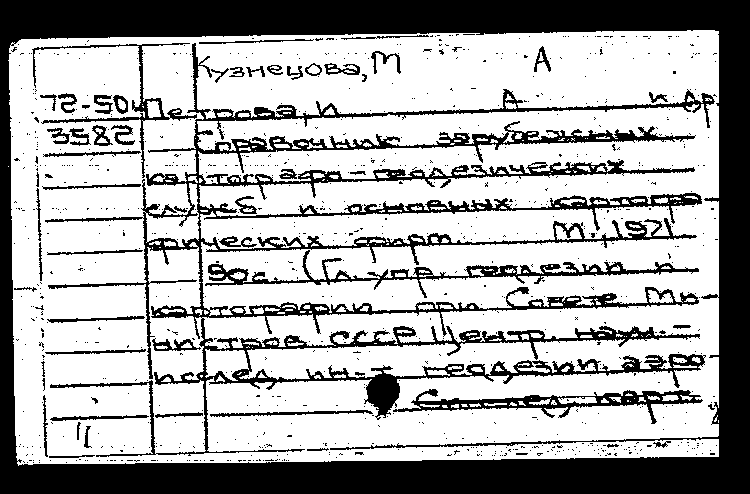 Кузнецова, М А
72-50ч Петрова, И А и др.
3582 Справочник зарубежных
картографо-геодезических
служб и основных картогра-
фических фирм. М., 1971
90с. (Гл. упр. геодезии и
картографии при Совете Ми-
нистров СССР Центр. науч.-
исслед. ин-т геодезии, аэро-
См. след. карт.
11